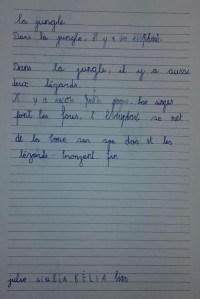 la jungle
Dans la jungle, il y a un éléphant.
Dans la jungle, il y a aussi
deux lézards.
Il y a encore trois singes. Les singes
font les fous. L'éléphant se met
de la boue sur son dos et les
lézards bronzent. fin
julie KÉLIA